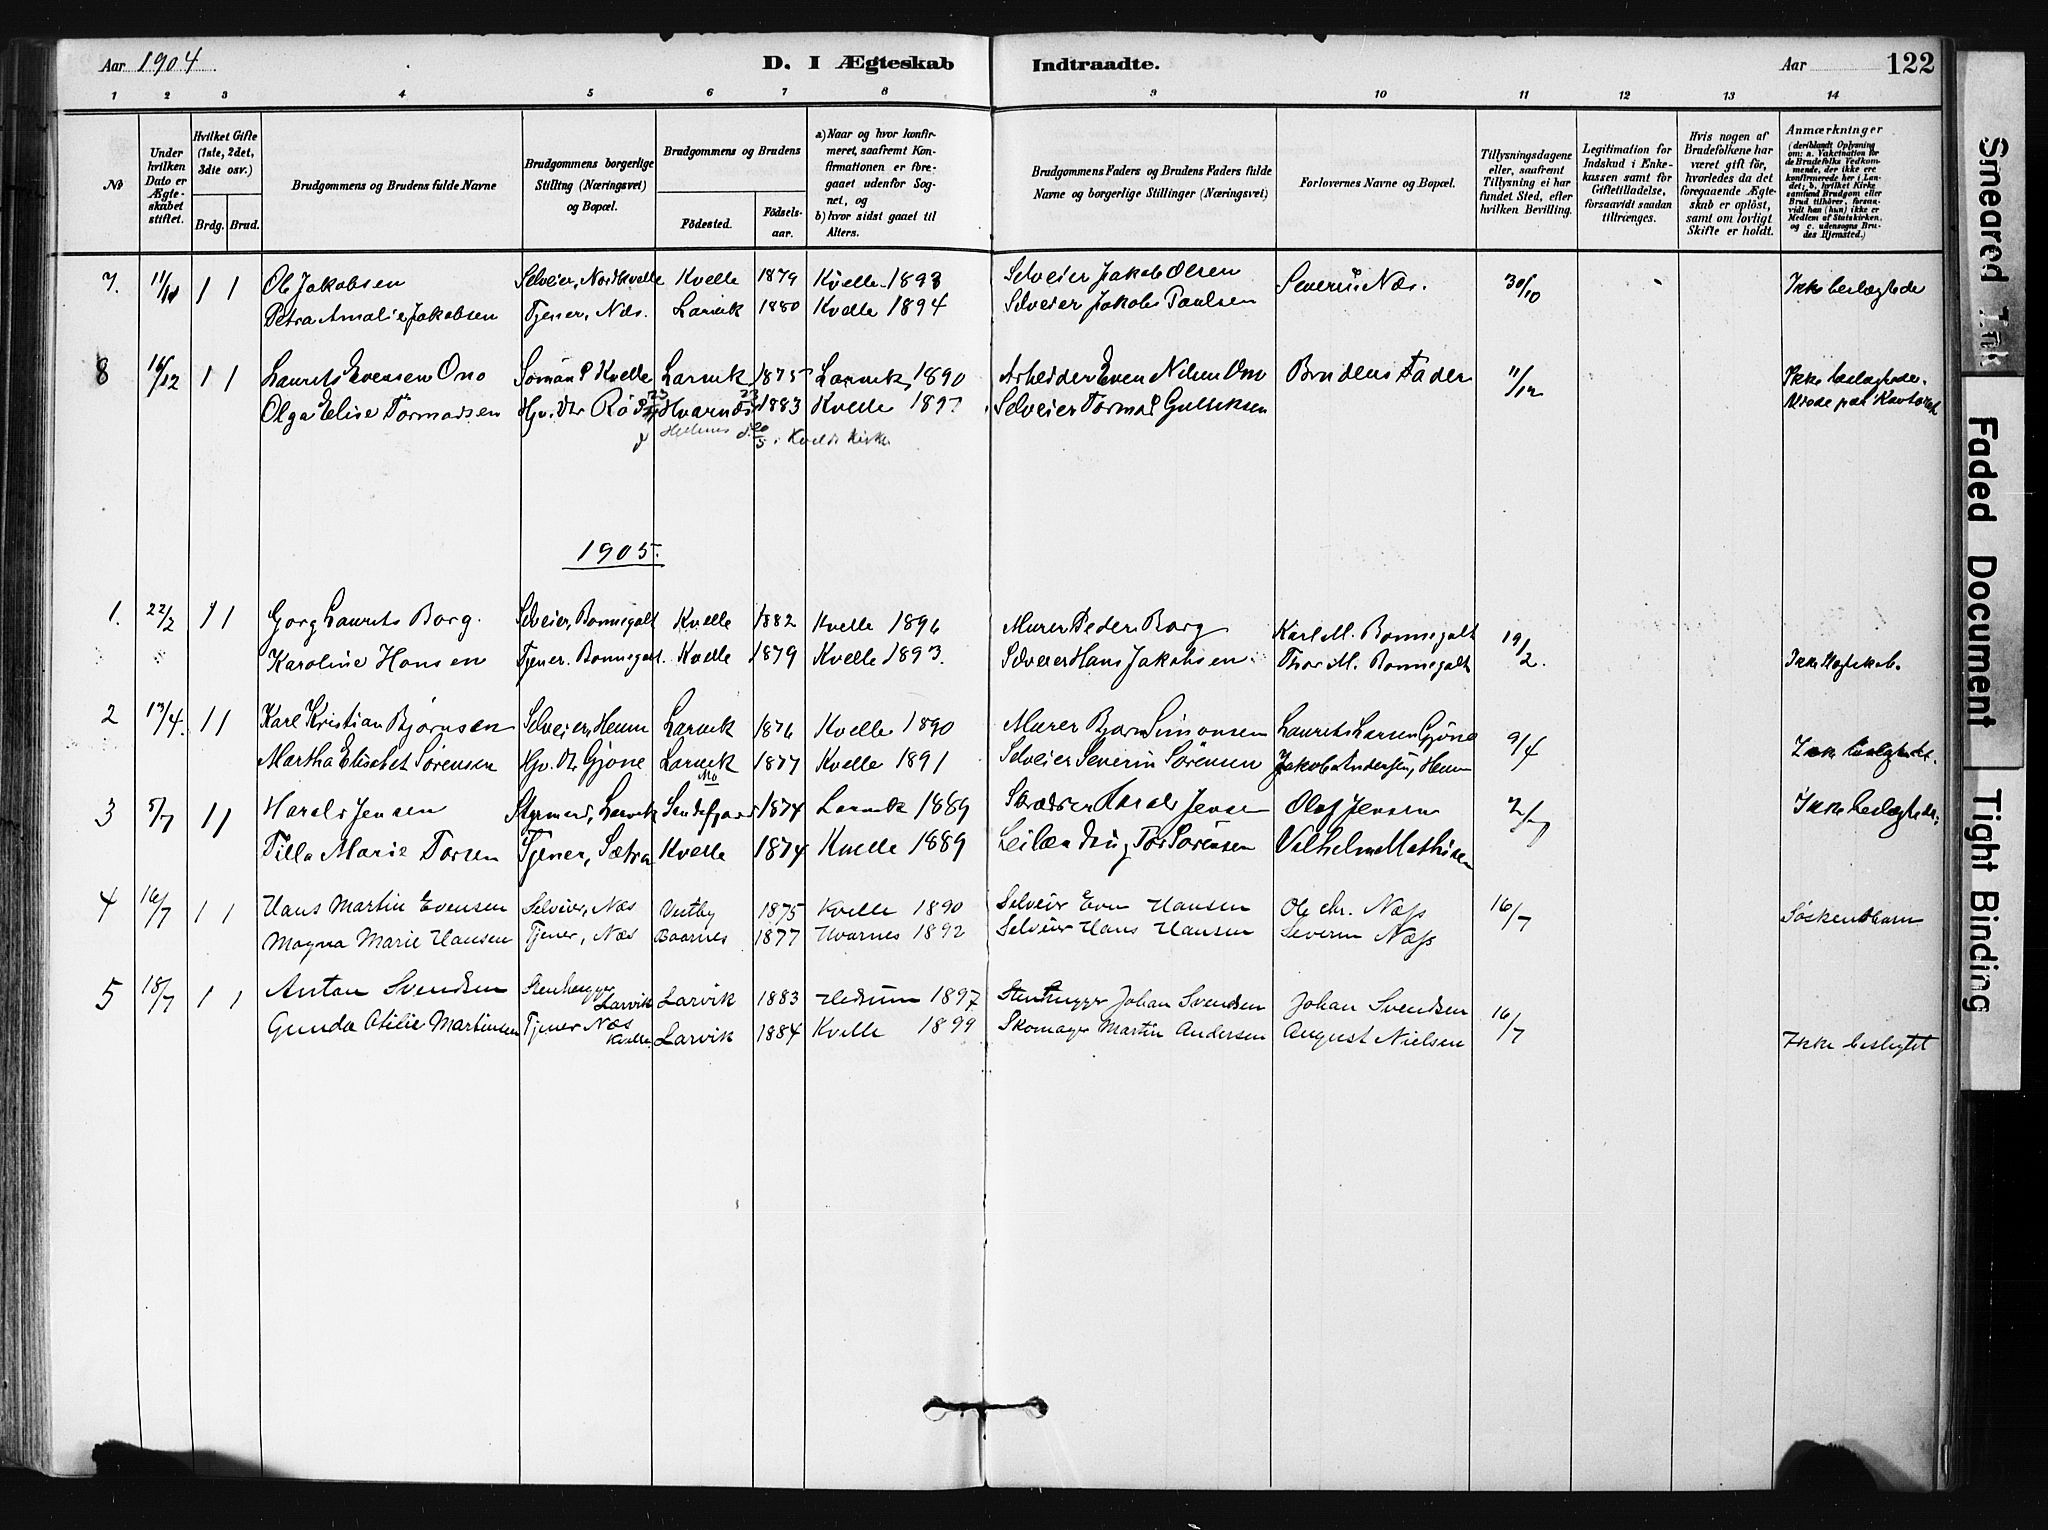 Aar 1904
D. I Ægteskab Indtraadte.
Aar
122
1 2 3 4 5 6 7 8 9 10 11 12 13 14
No
Under hvilken Dato er Ægteskabet stiftet.
Hvilket Gifte (1ste, 2det, 3die osv.)
Brdg. Brud.
Brudgommens og Brudens fulde Navne
Brudgommens borgerlige Stilling (Næringsvei) og Bopæl.
Brudgommens og Brudens
Fødested.
Fødselsaar.
a) Naar og hvor konfirmeret, saafremt Konfirmationen er foregaaet udenfor Sognet, og
b) hvor sidst gaaet til Alters.
Brudgommens Faders og Brudens Faders fulde Navne og borgerlige Stillinger (Næringsvei)
Forlovernes Navne og Bopæl.
Tillysningsdagene eller, saafremt Tillysning ei har fundet Sted, efter hvilken Bevilling.
Legitimation for Indskud i Enkekassen samt for Giftetilladelse, forsaavidt saadan tiltrænges.
Hvis nogen af Brudefolkene har været gift før, hvorledes da det foregaaende Ægteskab er opløst, samt om lovligt Skifte er holdt.
Anmærkninger (deriblandt Oplysning om: a. Vakcination for de Brudefolks Vedkommende, der ikke ere konfirmerede her i Landet; b. hvilket Kirkesamfund Brudgom eller Brud tilhører, forsaavidt han (hun) ikke er Medlem af Statskirken, og c. udensogns Brudes Hjemsted.)
7. 11/11 1 1 Ole Jakobsen Selveier, Nordkvelle Kvelle 1879 Kvelle 1893 Selveier Jakob Olsen Severin Næs. 30/10 Ikke beslægtede
Petra Amalie Jakobsen Tjener, Næs. Larvik 1880 Kvelle 1894 Selveier Jakob Paulsen
8 16/12 1 1 Laurits Evensen Ono Sømand Kvelle Larvik 1875 Larvik 1890 Arbeider Even Nilsen Ono Brudens Fader 11/12 Ikke beslægtede.
Olga Elise Tormodsen Hjv. Dtr Hvarnes 1883 Kvelle 1897 Selveier Tormod Gulliksen Viede paa Kontoret
Kvelle Kirke
1905.
1. 22/2 1 1 Gorg Laurits Borg. Selveier, Bonnegolt Kvelle 1882 Kvelle 1896 Murer Peder Borg Karl M. Bonnegolt 19/2.
Karoline Hansen Tjener. Bonnegolt. Kvelle 1879 Kvelle 1893. Selveier Hans Jakobsen. Thor M. Bonnegolt Ikke Slægtskab.
2 13/4. 1 1 Karl Kristian Bjørnsen Selveier, Hemn Larvik 1876 Kvelle 1890 Murer Bjørn Simonsen Laurits Larsen Gjøne 9/4
Martha Elisabet Sørensen Hjv. Dtr Gjøne Larvik 1877 Kvelle 1891 Selveier Severin Sørensen Jakob Andersen, Hemn Ikke beslægtede.
3 5/7 1 1 Harald Jensen Styrmand, Larvik Mo Sandefjord 1874 Larvik 1889 Skrædder Harald Jensen Olaf Jensen 2/7 Ikke beslægtede.
Tilla Marie Torsen Tjener, Sætra Kvelle 1874 Kvelle 1889 Leilænding Tor Sørensen Vilhelm Mathisen
4 16/7 1 1 Hans Martin Evensen Selveier, Næs Vestby 1875 Kvelle 1890 Selveier Even Hansen Ole Chr. Næss 16/7 Søskendbarn
Magna Marie Hansen Tjener, Næs Baarnes 1877 Hvarnes 1892 Selveier Hans Hansen Severin Næss
5 18/7 1 1 Anton Svendsen Stenhugger Larvik Larvik 1883 Hedrum 1897 Stenhugger Johan Svendsen Johan Svendsen 16/7
Gunda Otilie Martinsen Tjener Næs Kvelle Larvik 1884 Kvelle 1899 Skomager Martin Andersen August Nielsen Ikke beslegtet
Smeared Ink
Faded Document
Tight Binding